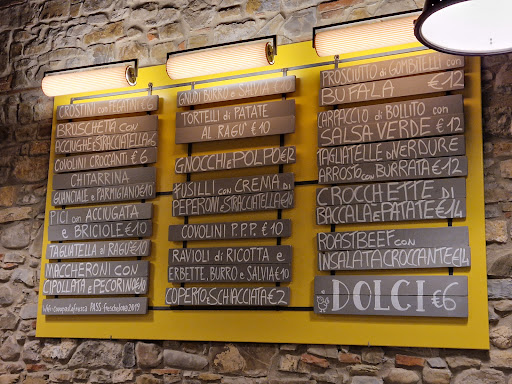 CROSTINI CON PEGATINI €6
BRUSCHETTA CON
ACCIUGHE E STRACCIATELLA €6
COVOLINI CROCCANTI €6
CHITARRINA
GUANCIALE E PARMIGIANO €10
PICI CON ACCIUGATA
E BRICIOLE €10
TAGLIATELLA AL RAGÙ €10
MACCHERONI CON
CIPOLLATA E PECORINO €10
GNUDI BURRO E SALVIA €10
TORTELLI DI PATATE
AL RAGU' €10
GNOCCHI E POLPO €12
FUSILLI CON CREMA DI
PEPERONI E STRACCIATELLA €10
COVOLINI P.P.P. €10
RAVIOLI DI RICOTTA E
ERBETTE, BURRO E SALVIA €10
COPERTO E SCHIACCIATA €2
PROSCIUTTO DI GOMBITELLI CON
BUFALA €12
CARPACCIO DI BOLLITO CON
SALSA VERDE €12
TAGLIATELLE DI VERDURE
ARROSTO CON BURRATA €12
CROCCHETTE DI
BACCALÀ E PATATE €14
ROASTBEEF CON
INSALATA CROCCANTE €14
DOLCI €6